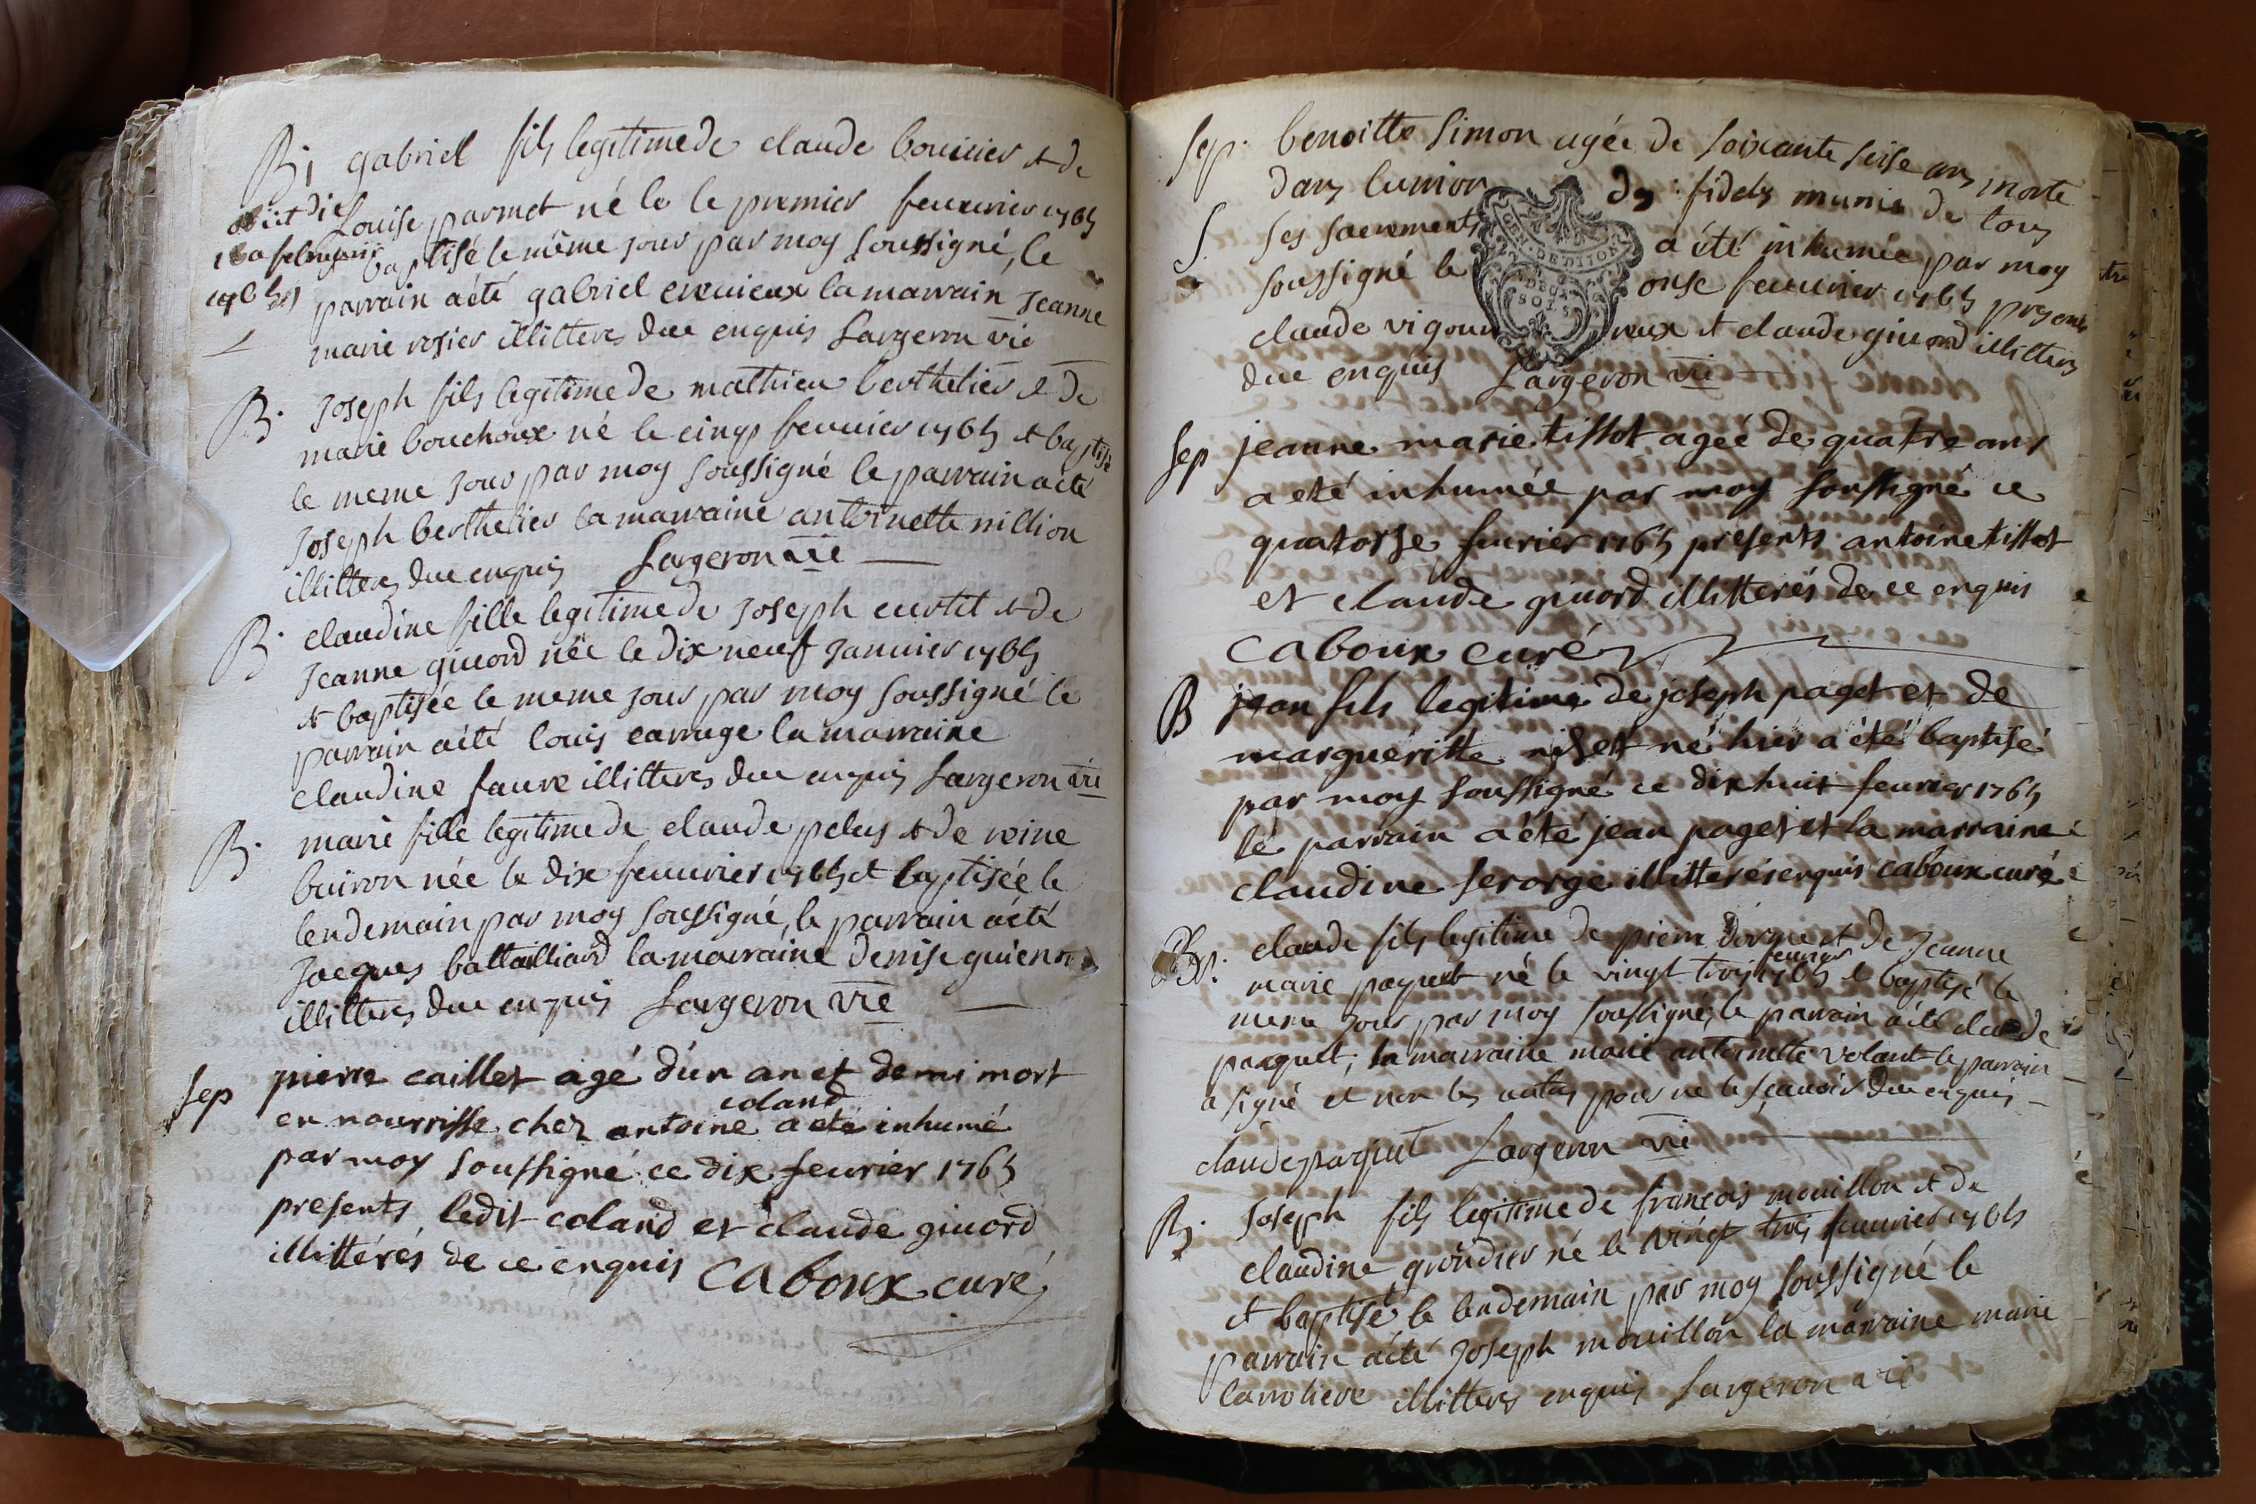 B. gabriel fils legitime de claude bouvier & de
Louise parmet né le le premier feuvrier 1765
baptisé le même jour par moy soussigné, le
parrain a été gabriel la marrain Jeanne
marie rosier illitteres due enquis Largeron vic
B. Joseph fils legitime de mathieu berthelier & de
marie bouchoux né le cinq feuvrier 1765 & baptisé
le meme jour par moy soussigné le parrain a eté
Joseph berthelier la marraine antoinette million
illitteres due enquis Largeron vic
B. claudine fille legitime de Joseph curtit & de
Jeanne giuord née le dix neuf Januier 1765
& baptisée le meme jour par moy soussigné le
parrain a été louis carruge la marraine
claudine faure illitteres due enquis Largeron vic
B. marie fille legitime de claude pelus & de reine
buiron née le dix feuvrier 1765 & baptisée le
lendemain par moy soussigné, le parrain a été
Jacques battailliard la marraine denise
illitteres due enquis Largeron vic
Sep pierre caillet agé d'un an et demi mort
coland
en nourrisse chez antoine a eté inhumé
par moy soussigné ce dix feurier 1765
presents ledit coland et claude giuord
illittérés de ce enquis Caboux curé
obiit die
1765
Sep. benoitte Simon agée de soixante seise ans morte
dans l'union des fidels munie de tous
S. ses sacrements a été inhumée par moy
soussigné le onse feuvrier 1765 presents
claude vigoureux & claude giuord illitteres
due enquis Largeron vic
GEN. DE DIJON
DEUX
SOLS
Sep jeanne marie tissot agée de quatre ans
a eté inhumée par moy soussigné ce
quatorse feurier 1765 présents antoine tissot
et claude giuord illitterés de ce enquis
Caboux curé
B jean fils legitime de joseph paget et de
margueritte niset né hier a été baptisé
par moy soussigné ce dix huit feurier 1765
le parrain a été jean paget et la marraine
claudine ferorge illitterés enquis Caboux curé
B. claude fils legitime de pierre & de Jeanne
feurier
marie paquet né le vingt trois 1765 & baptisé le
meme jour par moy soussigné, le parrain a été claude
paquet, la marraine marie antoinette volant le parrain
a signé et non les autres pour ne le sçauoir due enquis
claude paquet Largeron vic
B. Joseph fils legitime de françois mouillon & de
claudine grondier né le vingt trois feuvrier 1765
& baptisé le lendemain par moy soussigné le
parrain a été Joseph mouillon la marraine marie
illitteres enquis Largeron vic